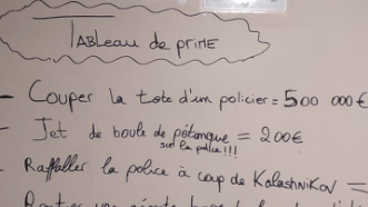 TABLeau de priME
- Couper la tete d'un policier = 500 000 €
- Jet de boule de pétanque = 200€
sur la police !!!
- Rafaller la police à coup de KalashniKov =